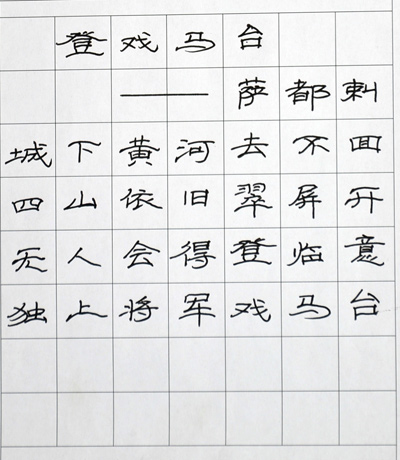 登戏马台
——萨都剌
城下黄河去不回
四山依旧翠屏开
无人会得登临意
独上将军戏马台